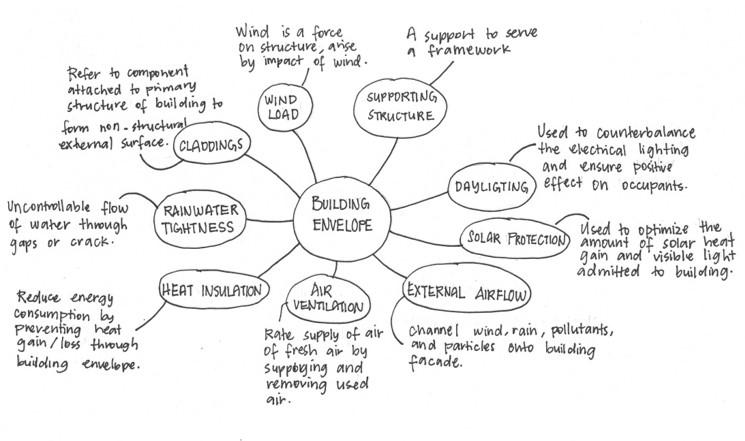 Wind is a force
on structure, arise
by impact of wind.
WIND
LOAD
A support to serve
a framework
SUPPORTING
STRUCTURE
Refer to component
attached to primary
structure of building to
form non-structural
external surface.
CLADDINGS
Used to counterbalance
the electrical lighting
and ensure positive
effect on occupants.
DAYLIGTING
Uncontrollable flow
of water through
gaps or crack.
RAINWATER
TIGHTNESS
BUILDING
ENVELOPE
SOLAR PROTECTION
Used to optimize the
amount of solar heat
gain and visible light
admitted to building.
Reduce energy
consumption by
preventing heat
gain/loss through
building envelope.
HEAT INSULATION
AIR
VENTILATION
Rate supply of air
of fresh air by
supplying and
removing used
air.
EXTERNAL AIRFLOW
Channel wind, rain, pollutants,
and particles onto building
facade.